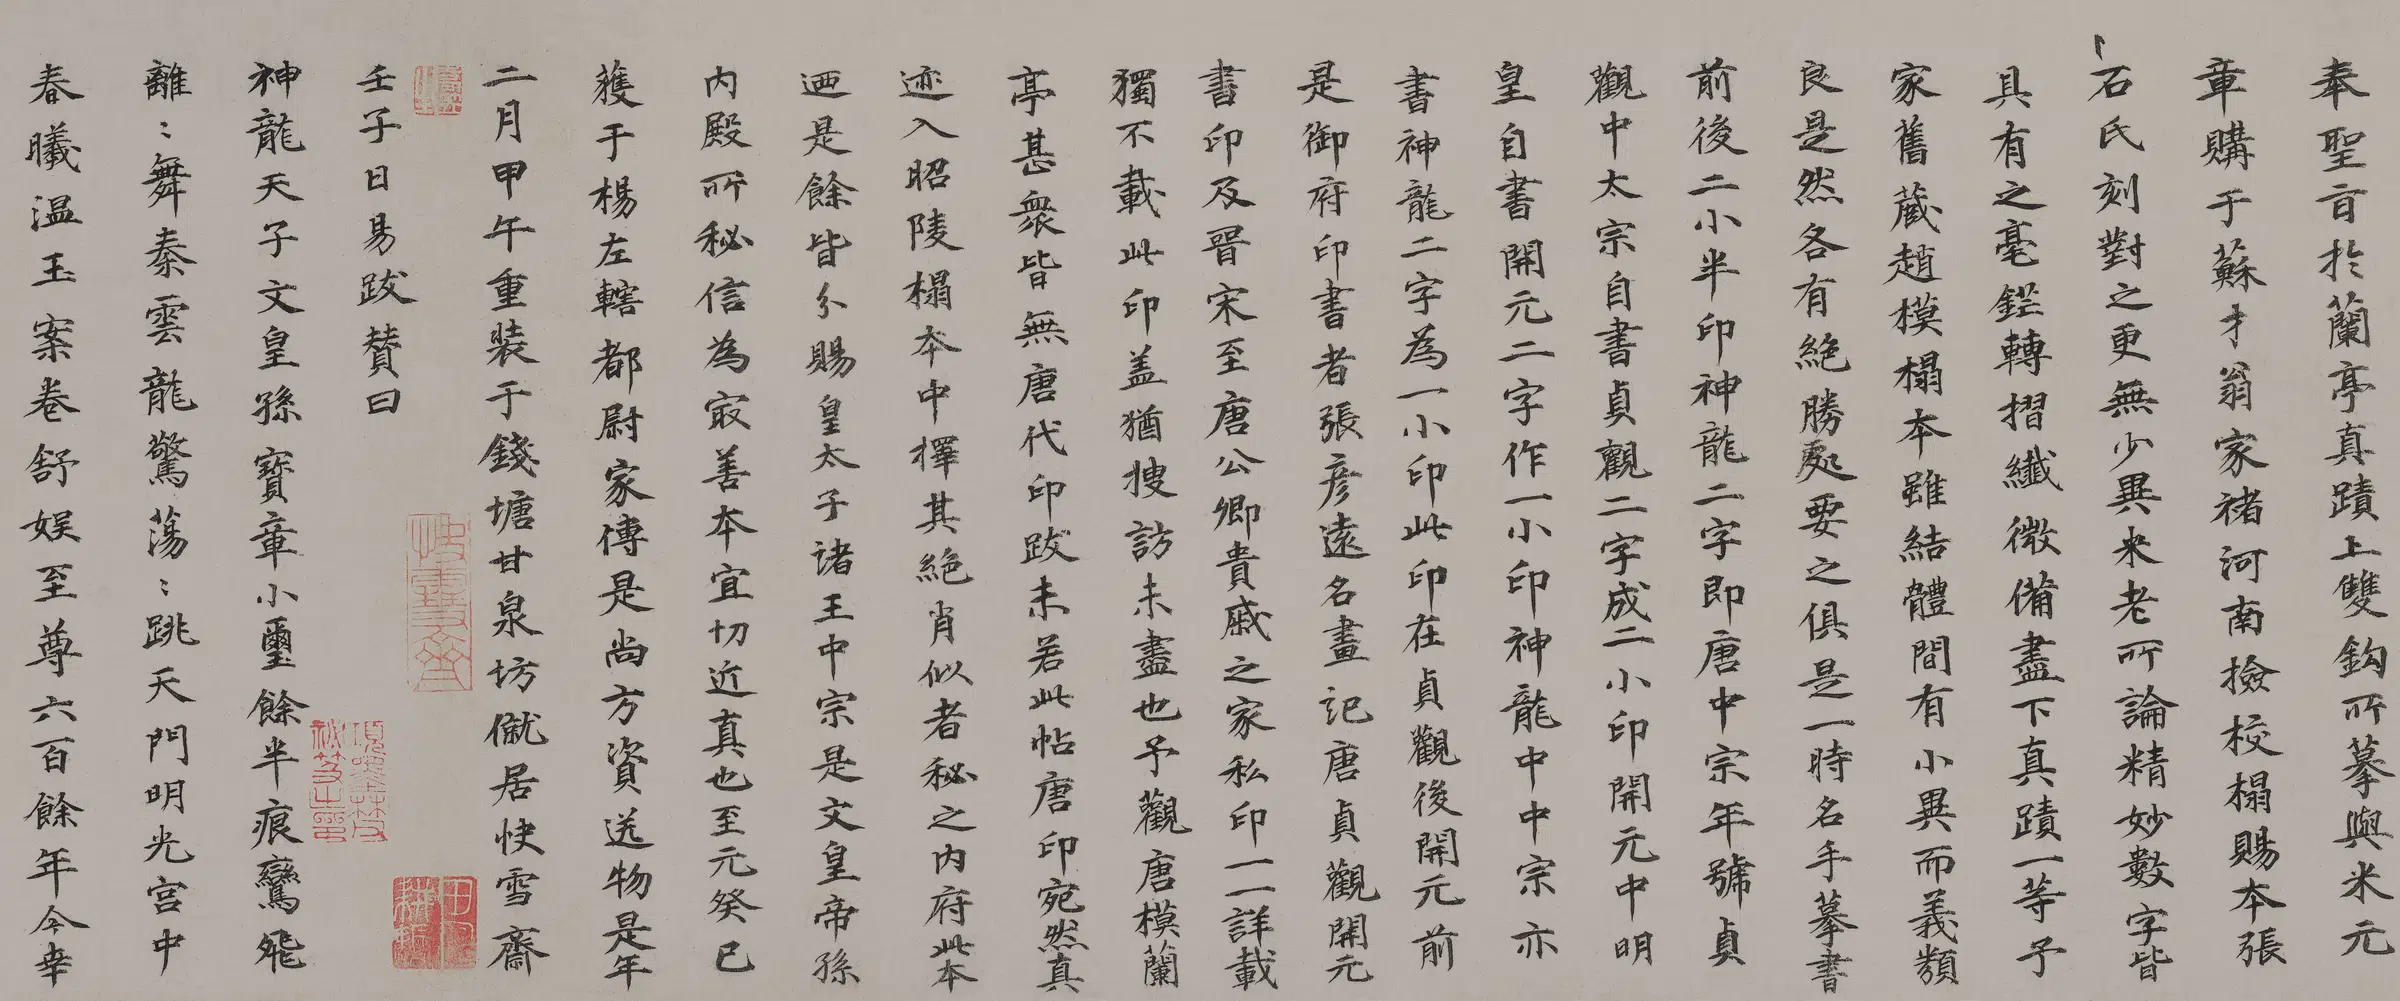 奉聖旨於蘭亭真蹟上雙鈎所摹與米元
章購于蘇才翁家褚河南撿校榻賜本張
石氏刻對之更無少異米老所論精妙數字皆
具有之毫鋩轉摺纖微備盡下真蹟一等予
家舊藏趙模榻本雖結體間有小異而義類
良是然各有絕勝處要之俱是一時名手摹書
前後二小半印神龍二字即唐中宗年號貞
觀中太宗自書貞觀二字成二小印開元中明
皇自書開元二字作一小印神龍中中宗亦
書神龍二字為一小印此印在貞觀後開元前
是御府印書者張彦遠名畫記唐貞觀開元
書印及晉宋至唐公卿貴戚之家私印一一詳載
獨不載此印盖猶搜訪未盡也予觀唐模蘭
亭甚衆皆無唐代印跋未若此帖唐印宛然真
迹入昭陵榻本中擇其絕肖似者秘之内府此本
迺是餘皆分賜皇太子諸王中宗是文皇帝孫
内殿所秘信為冣善本宜切近真也至元癸巳
獲于楊左轄都尉家傳是尚方資送物是年
二月甲午重装于錢塘甘泉坊僦居快雪齋
壬子日易跋賛曰
神龍天子文皇孫寳章小璽餘半痕鸞飛
離〻舞秦雲龍驚蕩〻跳天門明光宫中
春曦温玉案卷舒娱至尊六百餘年今幸
快雪齋
項墨林父
秘笈之印